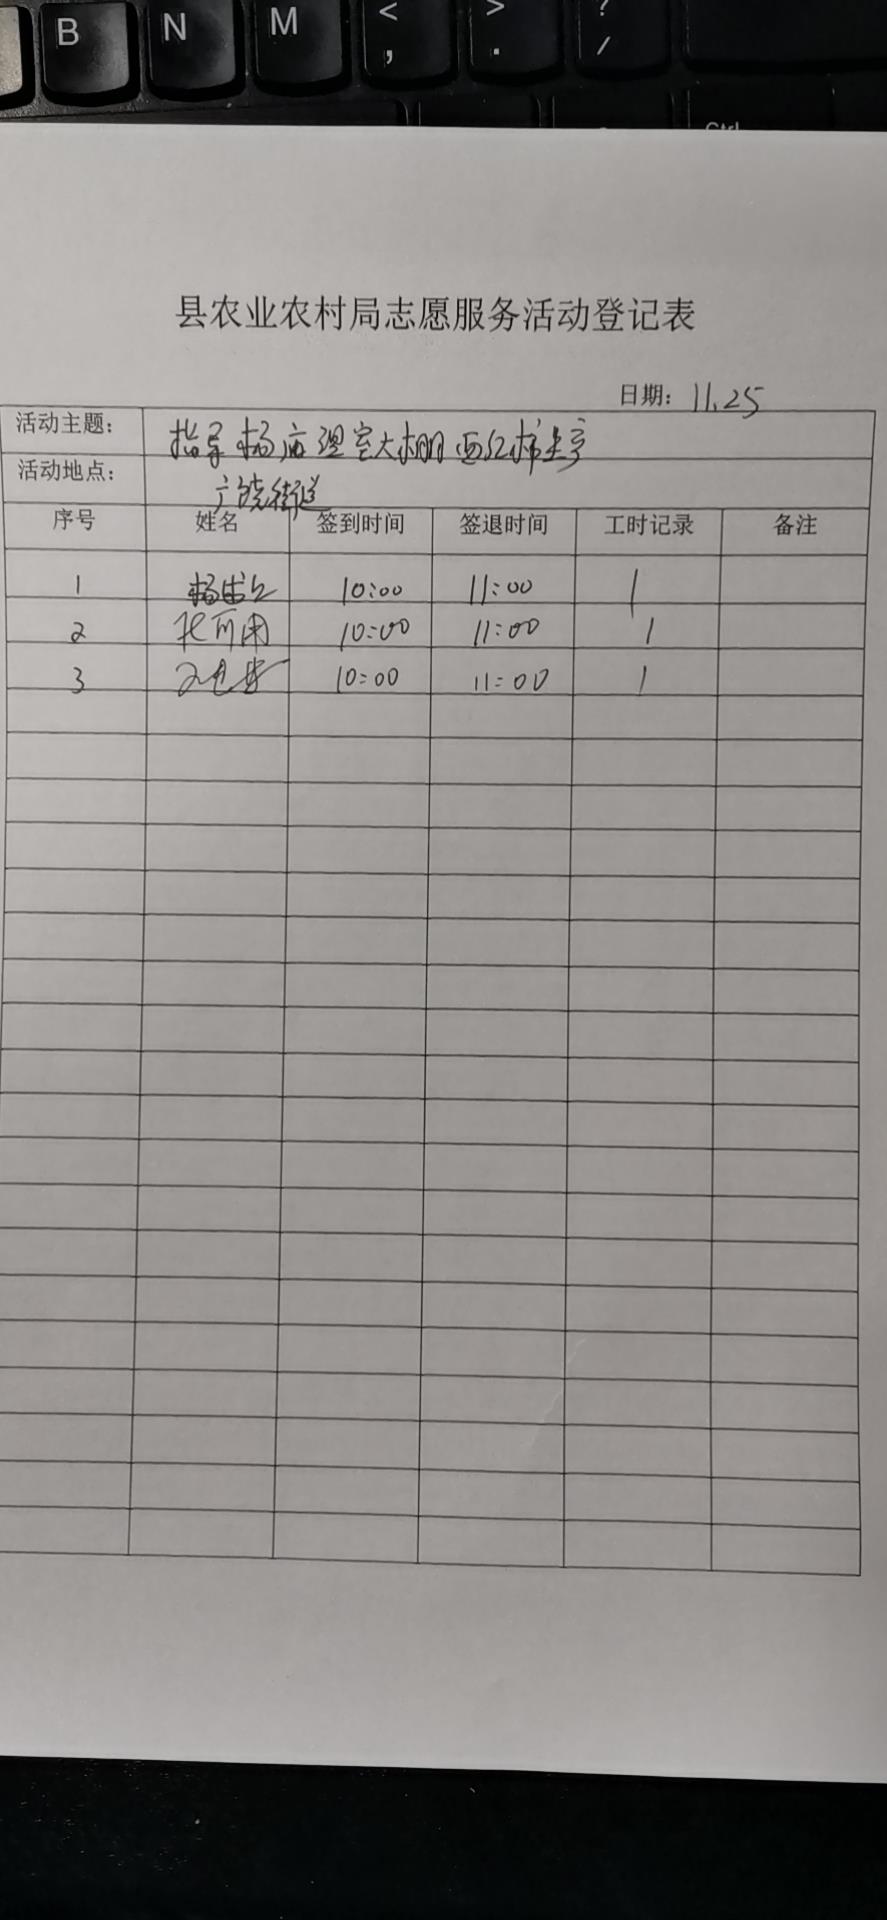 B N M < , > . ? /
Ctrl
县农业农村局志愿服务活动登记表
日期: 11.25
活动主题: 指导杨庙温室大棚西红柿生产
活动地点: 广饶街道
序号 姓名 签到时间 签退时间 工时记录 备注
1 10:00 11:00 1
2 10:00 11:00 1
3 10:00 11:00 1